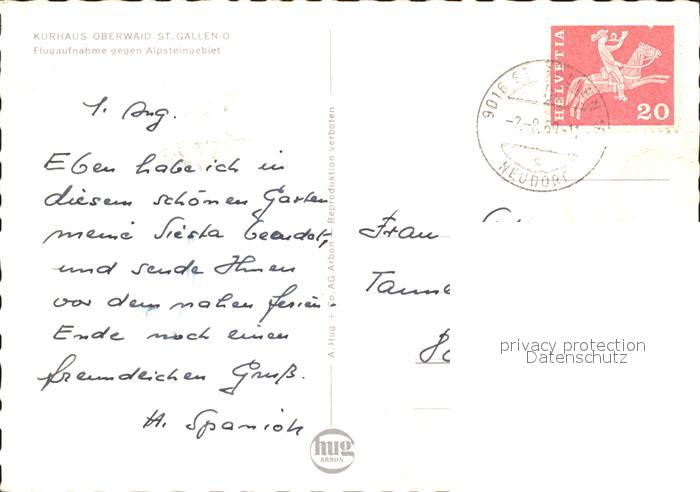 KURHAUS OBERWAID ST.GALLEN-O
Flugaufnahme gegen Alpsteingebiet
1. Aug.
Eben habe ich in
diesem schönen Garten
meine Siesta beendet,
und sende Ihnen
vor dem nahen ferien-
Ende noch einen
freundlichen Gruß.
H. Spaniol
A. Hug + Co. AG Arbon Reproduktion verboten
hug
ARBON
HELVETIA
20
9016 ST. GALLEN
NEUDORF
Frau
privacy protection
Datenschutz